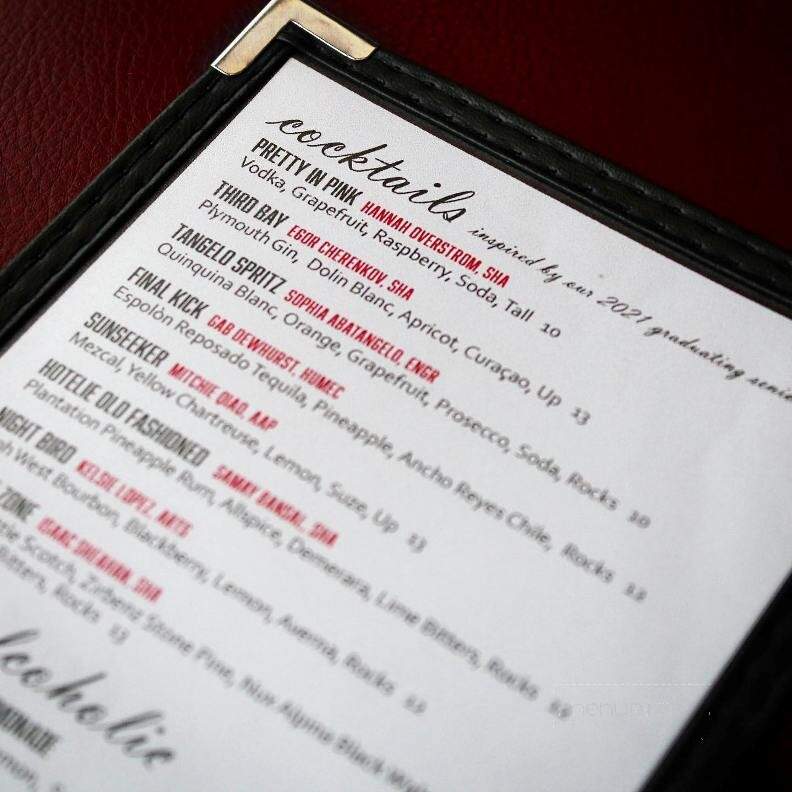 cocktails inspired by our 2021 graduating
PRETTY IN PINK HANNAH OVERSTROM, SHA
Vodka, Grapefruit, Raspberry, Soda, Tall 10
THIRD BAY EGOR CHERENKOV, SHA
Plymouth Gin, Dolin Blanc, Apricot, Curaçao, Up 13
TANGELO SPRITZ SOPHIA ABATANGELO, ENGR
Quinquina Blanc, Orange, Grapefruit, Prosecco, Soda, Rocks 10
FINAL KICK GAB DEWHURST, HUMEC
Espolòn Reposado Tequila, Pineapple, Ancho Reyes Chile, Rocks 12
SUNSEEKER MITCHIE QIAO, AAP
Mezcal, Yellow Chartreuse, Lemon, Suze, Up 13
HOTELIE OLD FASHIONED SAMAY BANSAL, SHA
Plantation Pineapple Rum, Allspice, Demerara, Lime Bitters, Rocks
NIGHT BIRD KELSIE LOPEZ, ARTS
West Bourbon, Blackberry, Lemon, Averna, Rocks 12
ZONE ISAAC SHEARN, SHA
Scotch, Zirbenz Stone Pine, Nux Alpina Black
Bitters, Rocks 13
lcoholic